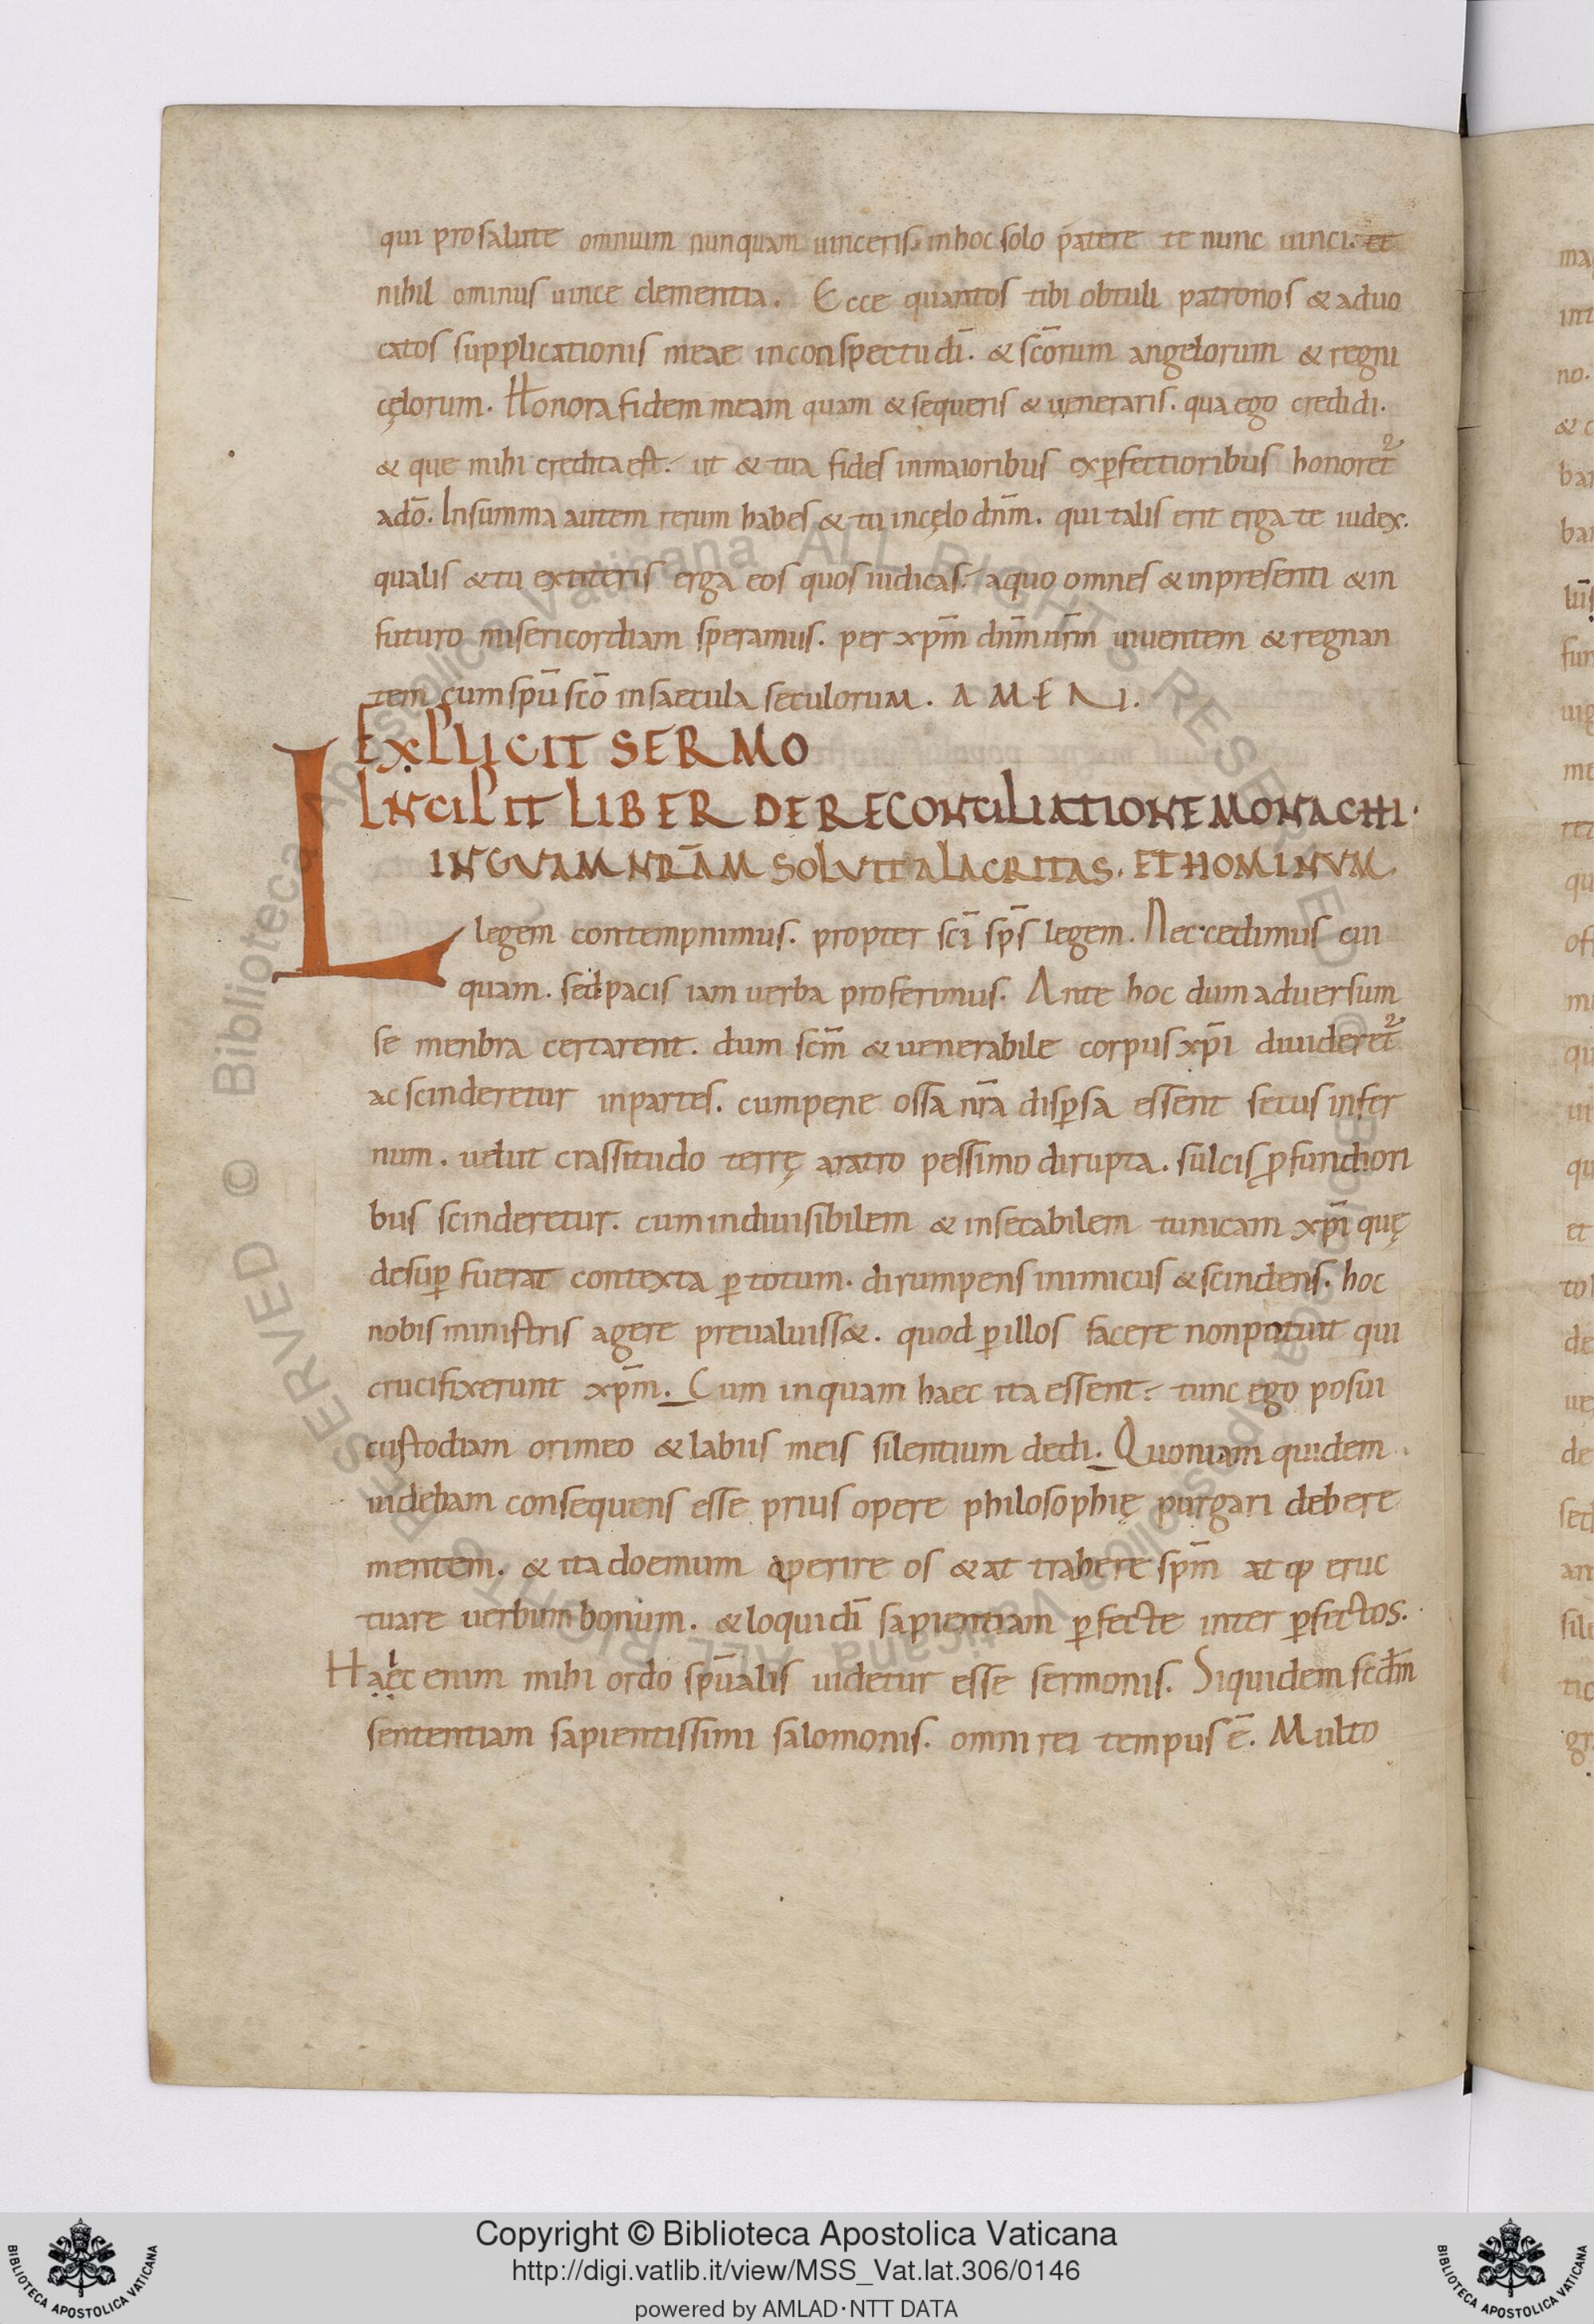 qui pro salute omnium nunquam uinceris. in hoc solo patere te nunc uinci. et
nihil ominus uince clementia. Ecce quantos tibi obtuli patronos & aduo
catos supplicationis meae in conspectu dī. & scōrum angelorum & regni
cęlorum. Honora fidem meam quam & sequeris & ueneraris. qua ego credidi.
& que mihi credita est. ut & tua fides in maioribus & ꝑfectioribus honoret᷑
a dō. In summa autem rerum habes & tu in cęlo dn̄m. qui talis erit erga te iudex.
qualis & tu extiteris erga eos quos iudicas. a quo omnes & in presenti & in
futuro misericordiam speramus. per xp̄m dn̄m nr̄m uiuentem & regnan
tem cum spū scō in saecula seculorum. AMEN.
EXPLICIT SERMO
INCIPIT LIBER DE RECONCILIATIONE MONACHI.
LINGUAM NR̄AM SOLVIT ALACRITAS. ET HOMINVM
legem contempnimus. propter scī sp̄s legem. Nec cedimus cui
quam. sed pacis iam uerba proferimus. Ante hoc dum aduersum
se menbra certarent. dum scm̄ & uenerabile corpus xp̄i diuideret᷑
ac scinderetur in partes. cum pene ossa nr̄a disꝑsa essent secus infer
num. uelut crassitudo terrę aratro pessimo dirupta. sulcis ꝓfundiori
bus scinderetur. cum indiuisibilem & insecabilem tunicam xp̄i quę
desuꝑ fuerat contexta ꝑ totum. dirumpens inimicus & scindens. hoc
nobis ministris agere preualuiss&. quod ꝑ illos facere non potuit qui
crucifixerunt xp̄m. Cum inquam haec ita essent. tunc ego posui
custodiam ori meo & labiis meis silentium dedi. Quoniam quidem
uidebam consequens esse prius opere philosophię purgari debere
mentem. & ita doemum aperire os & attrahere sp̄m atqꝫ eruc
tuare uerbum bonum. & loqui dī sapientiam ꝑfecte inter ꝑfectos.
Haec enim mihi ordo spūalis uidetur esse sermonis. Siquidem scd̄m
sententiam sapientissimi salomonis. omni rei tempus ē. Multo
Copyright © Biblioteca Apostolica Vaticana
http://digi.vatlib.it/view/MSS_Vat.lat.306/0146
powered by AMLAD·NTT DATA
BIBLIOTECA APOSTOLICA VATICANA
BIBLIOTECA APOSTOLICA VATICANA